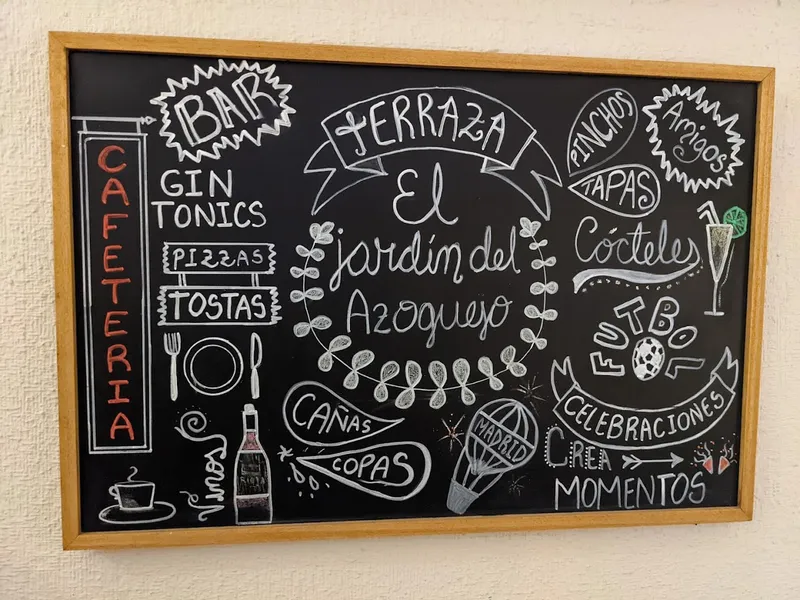 CAFETERIA
BAR
GIN
TONICS
PIZZAS
TOSTAS
Vinos
RIOJA
TERRAZA
El
jardín del
Azoguejo
CAÑAS
COPAS
MADRID
PINCHOS
TAPAS
Amigos
Cócteles
FUTBOL
CELEBRACIONES
CREA
MOMENTOS